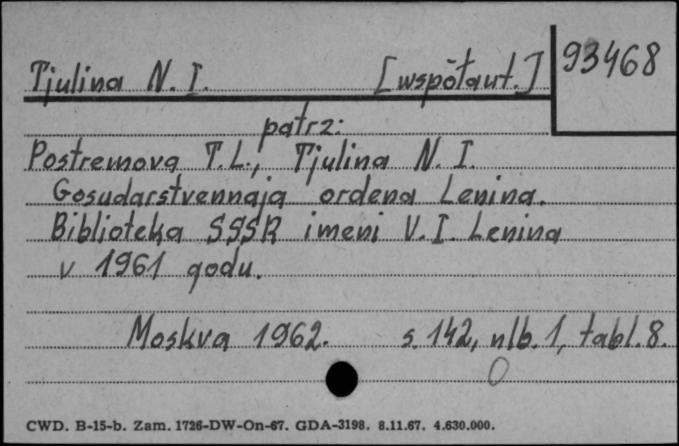 93468
Tjulina N. I. [współaut.]
patrz:
Postremova T.L., Tjulina N. I.
Gosudarstvennaja ordena Lenina.
Biblioteka SSSR imeni V. I. Lenina
v 1961 godu.
Moskva 1962. s. 142, nlb. 1, tabl. 8.
CWD. B-15-b. Zam. 1726-DW-On-67. GDA-3198. 8.11.67. 4.630.000.